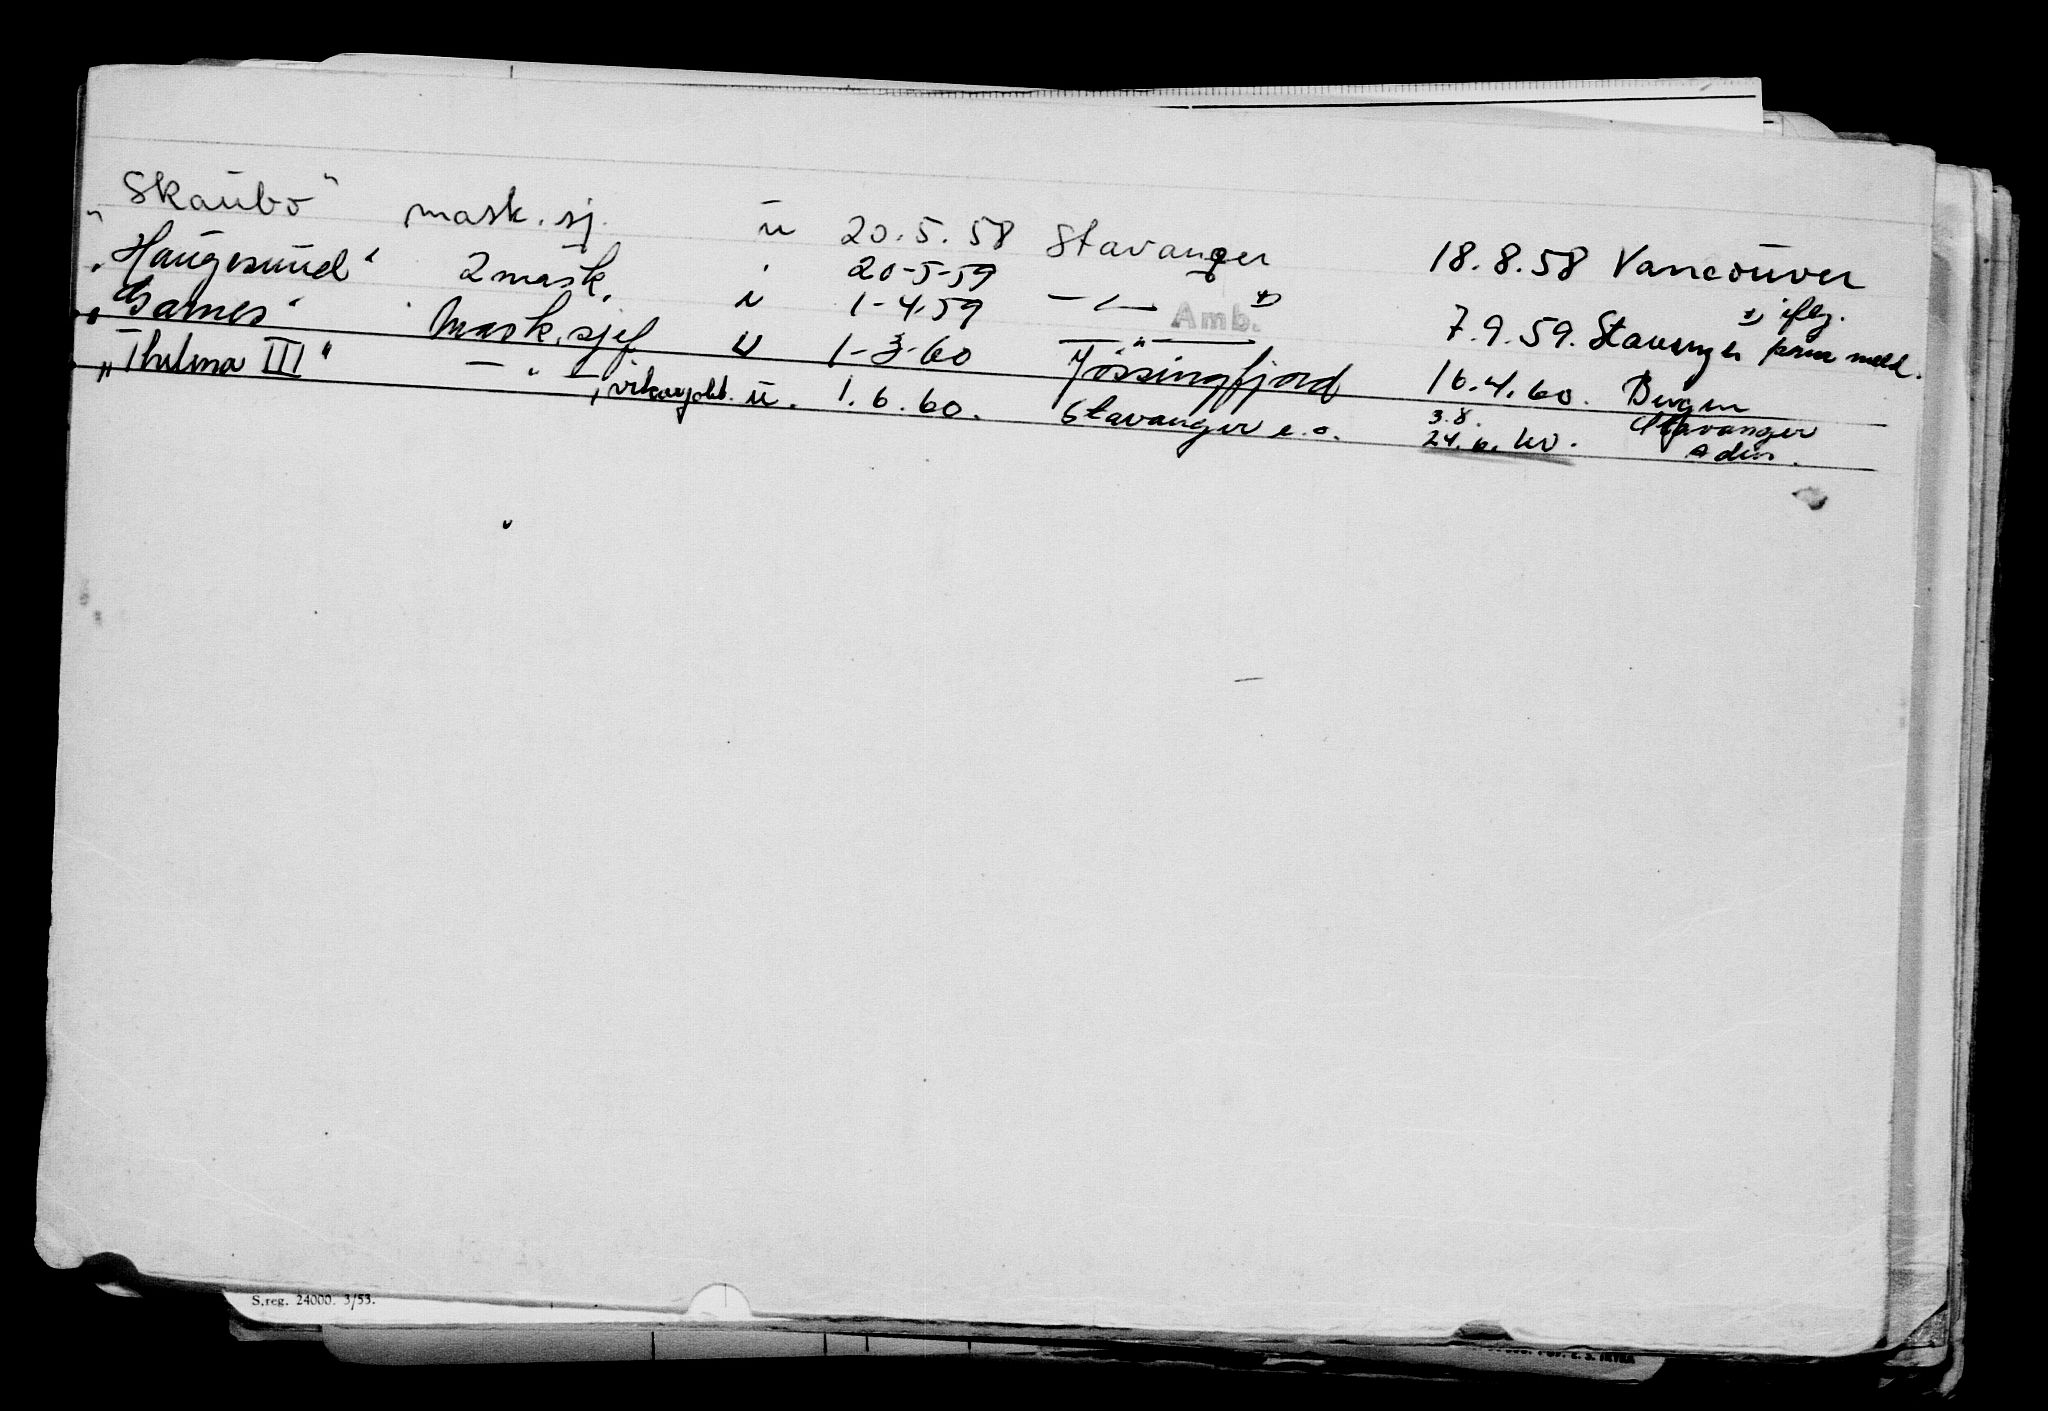 "Skaubo" mask.sj. u 20.5.58 Stavanger 18.8.58 Vancouver
"Haugesund" 2 mask. u 20-5-59
"Garnes" Mask.sjef u 1-4.59 — " — x) 7.9.59. Stavanger x) iflg. pers. meld.
Amb.
— " — 1-3-60 Jøssingfjord 16.4.60. Bergen
"Thelma III" — " —, vikarjobb. u. 1.6.60. Stavanger e.o. 3.8. Stavanger
24.6.60. Aden.
S.reg. 24000. 3/53.